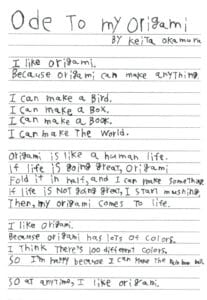 Ode To my Origami
BY Keita Okamura
I like origami.
Because origami can make anything.
I can make a Bird.
I can make a Box.
I can make a Book.
I can make The World.
Origami is like a human life.
If life is going great, Origami
Fold it in half, and I can make something
if life is Not going great, I start mushing,
Then, my origami comes To life.
I like Origami.
Because origami has lots of colors.
I Think There's 100 different colors.
SO I'm happy because I can make the
SO at anytime, I like origami.